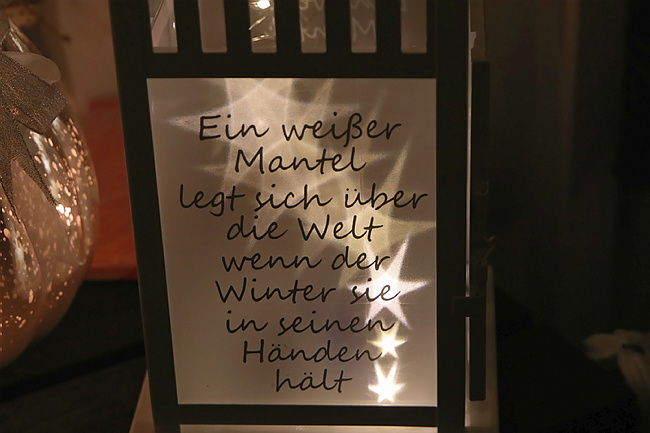 Ein weißer
Mantel
legt sich über
die Welt
wenn der
Winter sie
in seinen
Händen
hält